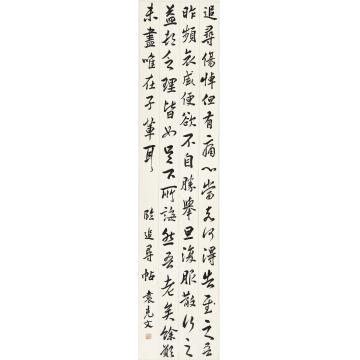 追尋傷悼但有痛心當奈何得告慰之吾
昨頻哀感便欲不自勝舉旦復服散行之
益頓乏理皆如足下所誨然吾老矣餘願
未盡唯在子輩耳 臨追尋帖 袁克文